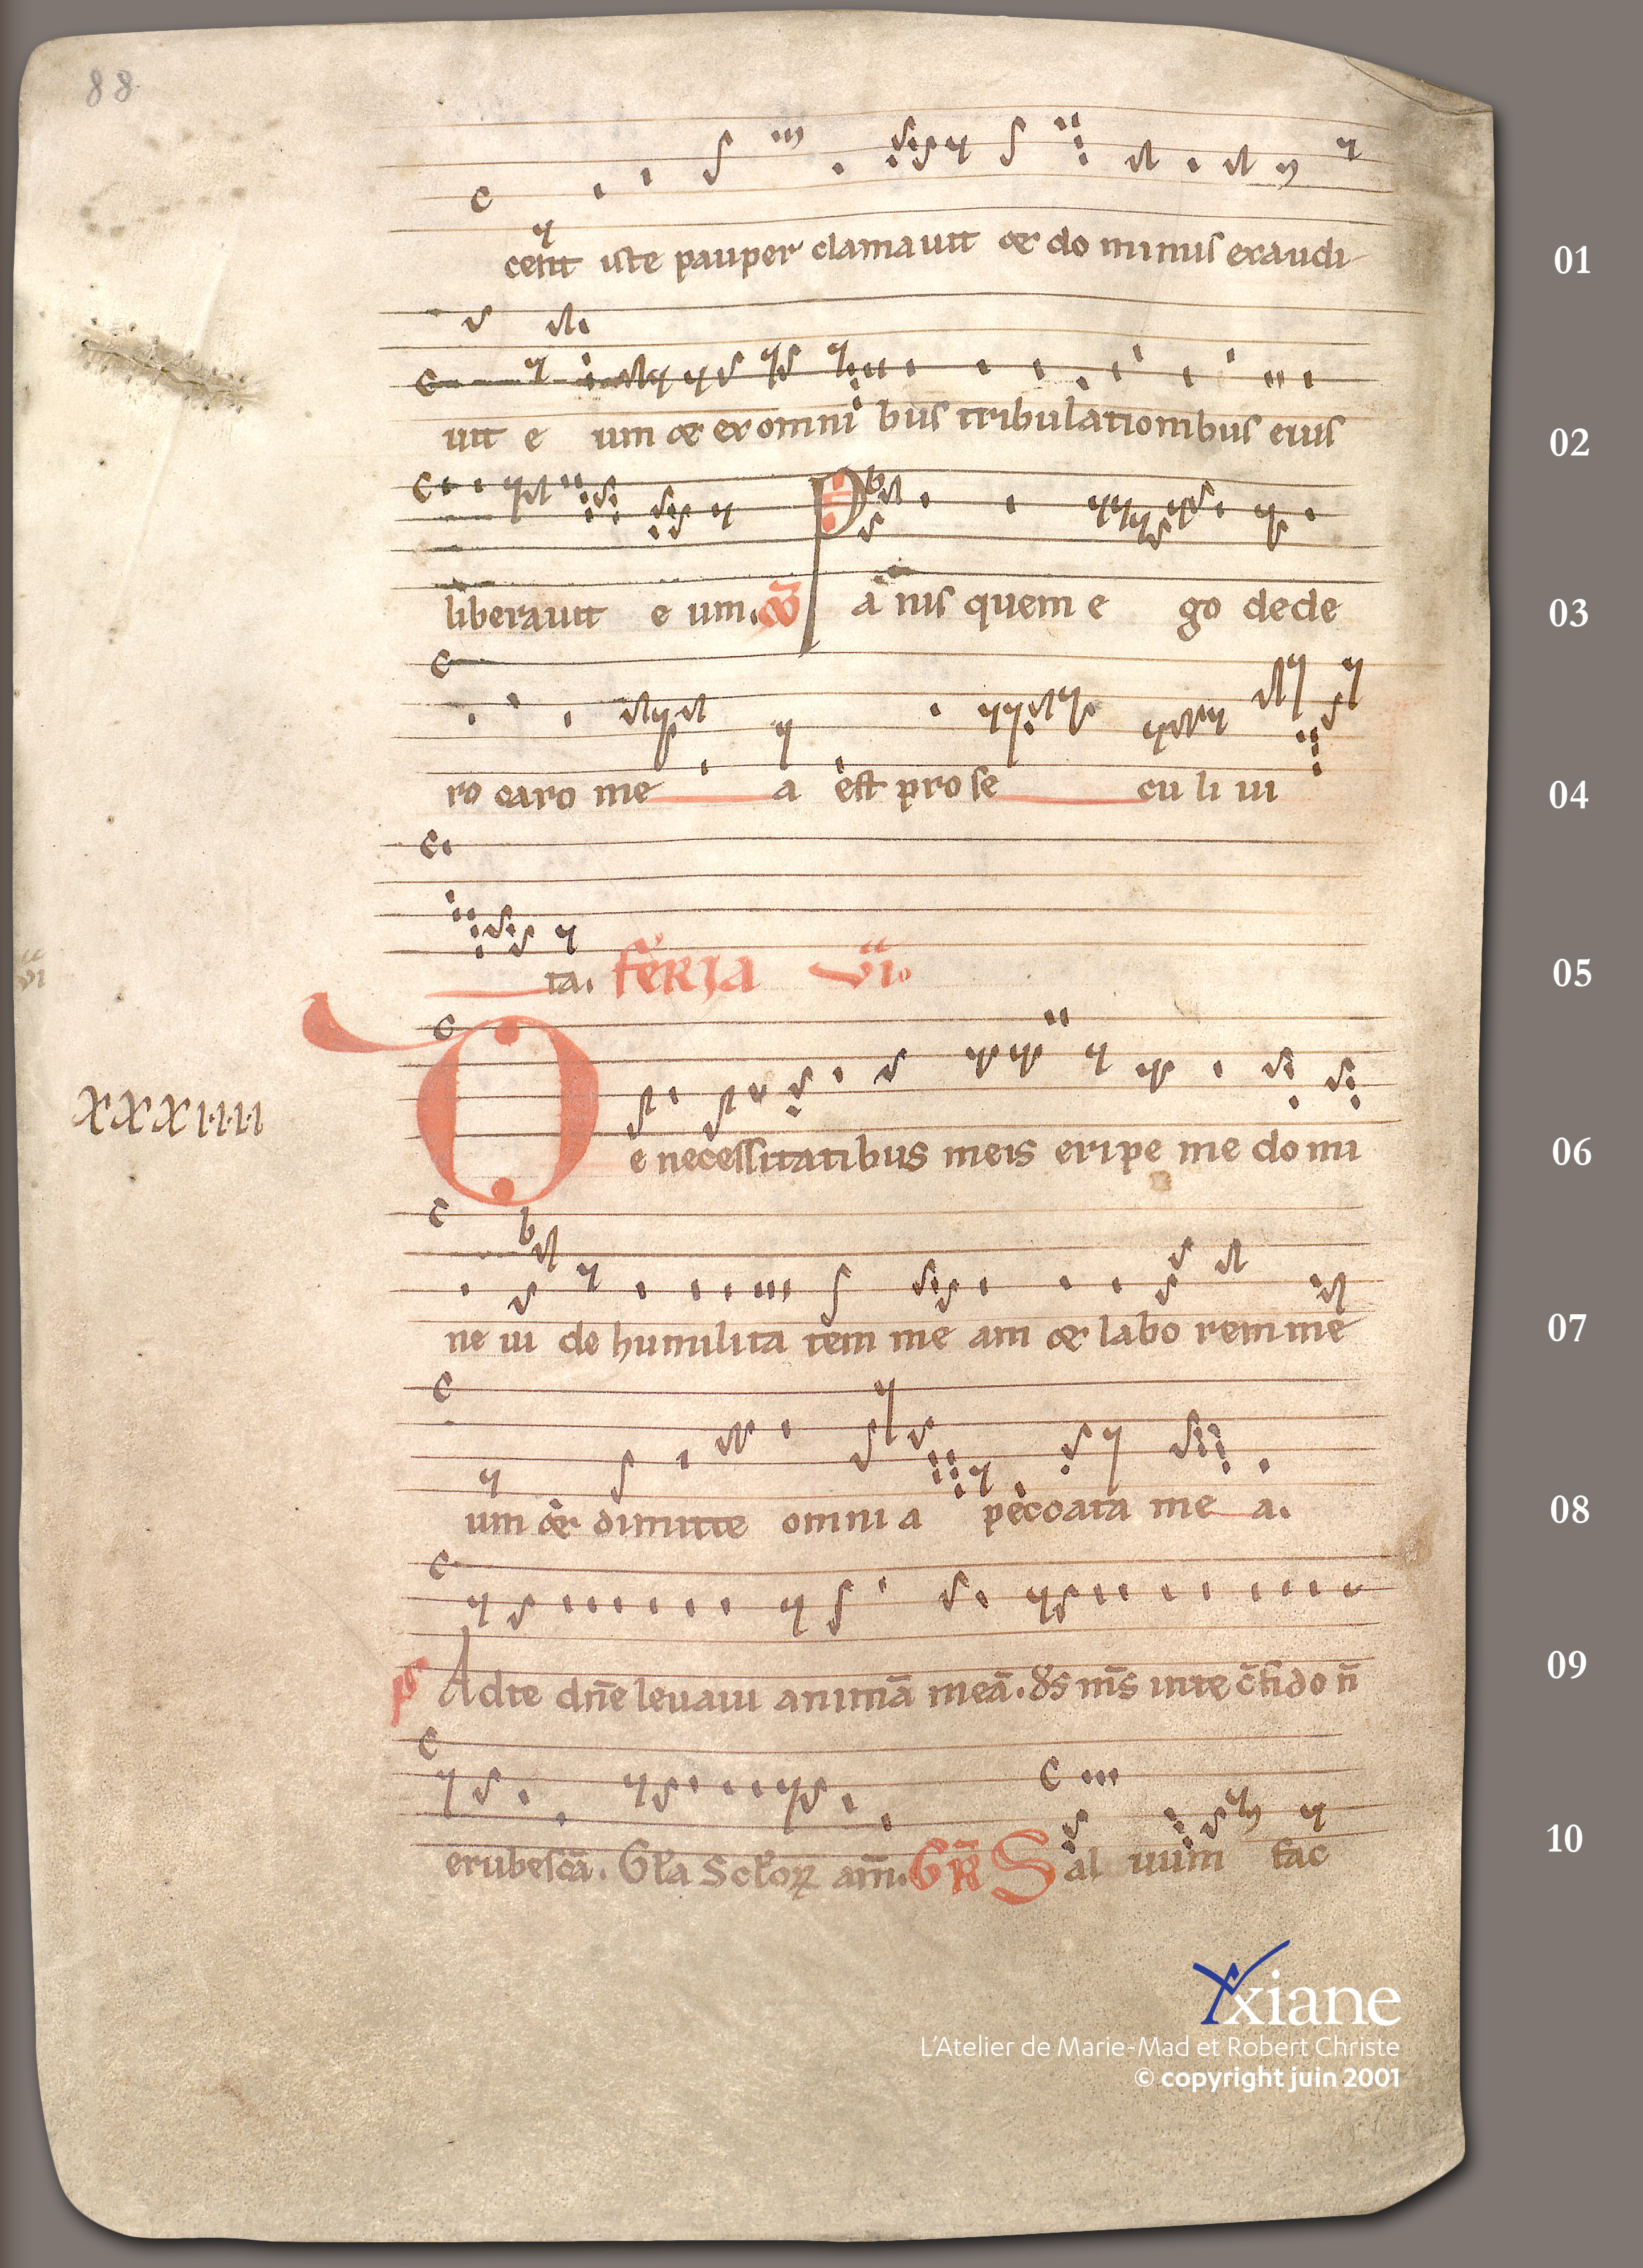 88
cent iste pauper clamauit & do minus exaudi 01
uit e um & ex omni bus tribulationibus eius 02
liberauit e um. C̄O Pa nis quem e go dede 03
ro caro me a est pro se cu li ui 04
ta. FERIA VI. 05
XXXIIII
De necessitatibus meis eripe me do mi 06
ne ui de humilita tem me am & labo rem me 07
um & dimitte omni a peccata me a. 08
ps Ad te dn̄e leuaui animā meā. ds̄ ms̄ in te c̄fido n̄ 09
erubescā. Gl̄a Sc̄loꝝ am̄. GR̄ Sal uum fac 10
Yxiane
L'Atelier de Marie-Mad et Robert Christe
© copyright juin 2001